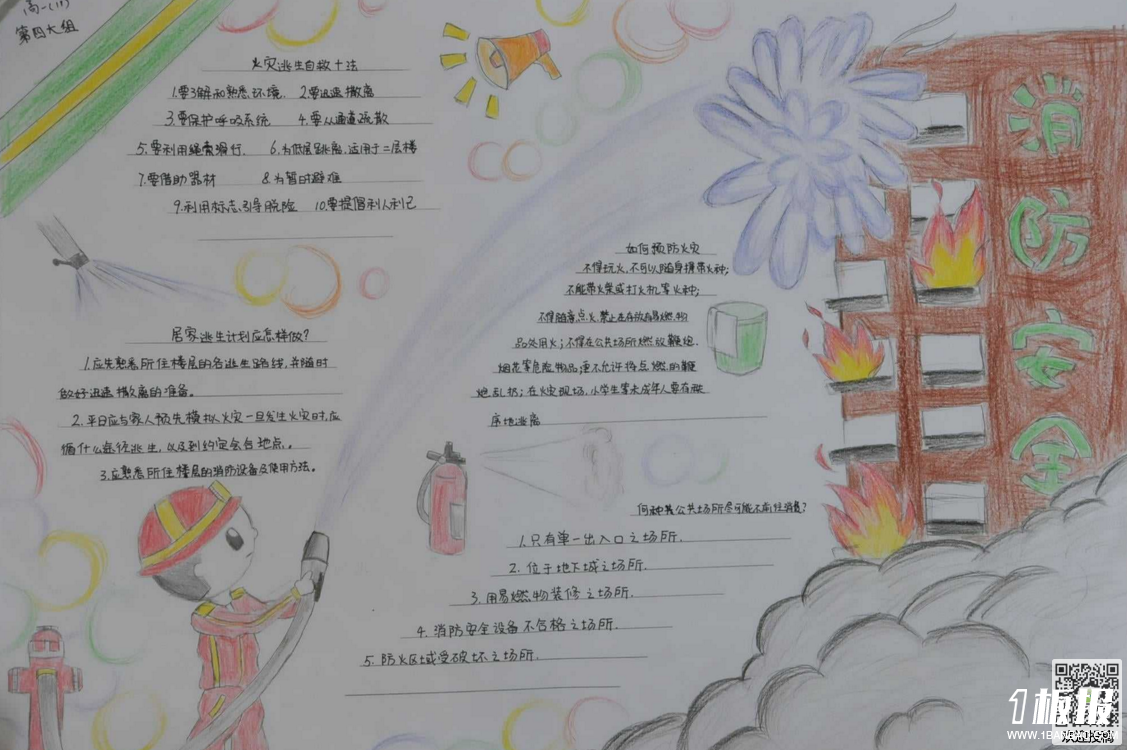 高一(11)
第四大组
火灾逃生自救十法
1.要了解和熟悉环境. 2.要迅速撤离
3.要保护呼吸系统 4.要从通道疏散
5.要利用绳索滑行. 6.为低层跳离,适用于二层楼
7.要借助器材 8.为暂时避难
9.利用标志引导脱险 10.要提倡利人利己
居家逃生计划应怎样做?
1.应先熟悉所住楼层的各逃生路线,并随时
做好迅速撤离的准备。
2.平日应与家人预先模拟火灾一旦发生火灾时,应
循什么途径逃生,以及到约定会合地点。
3.应熟悉所住楼层的消防设备及使用方法。
如何预防火灾
不惧玩火,不可以随身携带火种;
不能带火柴或打火机等火种;
不得随意点火,禁止在存放易燃物
品处用火;不得在公共场所燃放鞭炮.
烟花等危险物品;更不允许将点燃的鞭
炮乱扔;在火灾现场,小学生等未成年人要有秩
序地逃离
何种其公共场所尽可能不前往消费?
1.只有单一出入口之场所.
2.位于地下城之场所.
3.用易燃物装修之场所.
4.消防安全设备不合格之场所.
5.防火区域受破坏之场所.
消
防
安
全
1板报
WWW.1BANBAO.COM